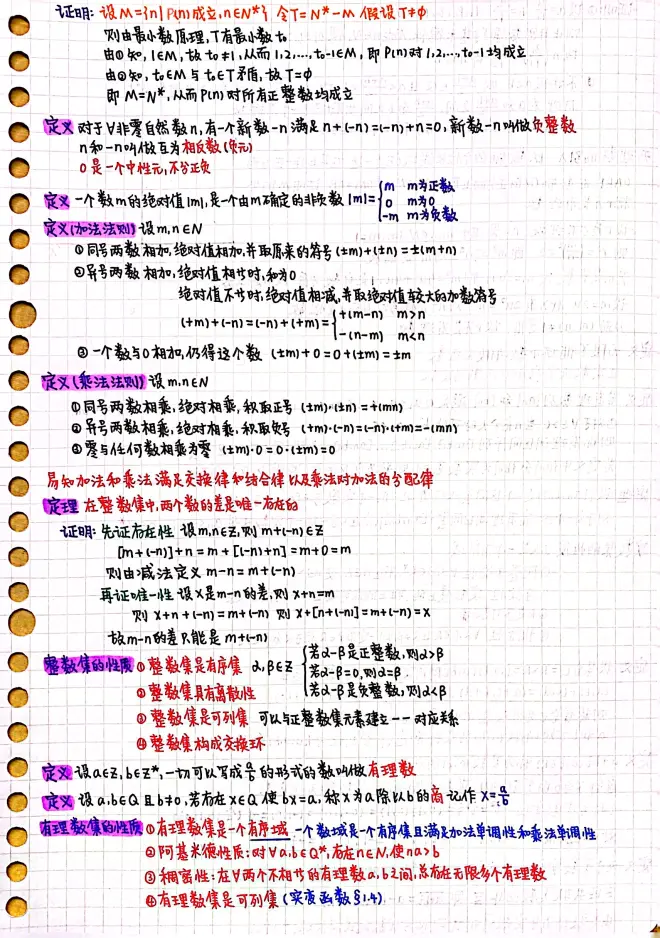 证明: 设 M={n| P(n)成立, n∈N*} 令T=N*-M 假设T≠φ
则由最小数原理,T有最小数t₀
由①知, 1∈M, 故 t₀≠1, 从而 1,2,…,t₀-1∈M, 即 P(n)对 1,2,…,t₀-1 均成立
由②知, t₀∈M 与 t₀∈T矛盾, 故 T=φ
即 M=N*, 从而P(n) 对所有正整数均成立
定义 对于∀非零自然数n, 有一个新数-n 满足 n+(-n)=(-n)+n=0, 新数-n叫做负整数
n和-n叫做互为相反数(负元)
0是一个中性元,不分正负
定义 一个数m的绝对值|m|,是一个由m确定的非负数 |m|={m m为正数
0 m为0
-m m为负数
定义(加法法则) 设m,n∈N
①同号两数相加,绝对值相加,并取原来的符号 (±m)+(±n)=±(m+n)
②异号两数相加,绝对值相等时,和为0
绝对值不等时,绝对值相减,并取绝对值较大的加数符号
(+m)+(-n)=(-n)+(+m)={+(m-n) m>n
-(n-m) m<n
③ 一个数与0相加,仍得这个数 (±m)+0=0+(±m)=±m
定义(乘法法则) 设m,n∈N
①同号两数相乘,绝对相乘,积取正号 (±m)·(±n)=+(mn)
②异号两数相乘,绝对相乘,积取负号 (+m)·(-n)=(-n)·(+m)=-(mn)
③零与任何数相乘为零 (±m)·0=0·(±m)=0
易知加法和乘法满足交换律和结合律以及乘法对加法的分配律
定理 在整数集中,两个数的差是唯一存在的
证明: 先证存在性 设m,n∈Z,则 m+(-n)∈Z
[m+(-n)]+n=m+[(-n)+n]=m+0=m
则由减法定义 m-n=m+(-n)
再证唯一性 设x是m-n的差,则 x+n=m
则 x+n+(-n)=m+(-n) 则 x+[n+(-n)]=m+(-n)=x
故m-n的差只能是 m+(-n)
整数集的性质 ①整数集是有序集 α,β∈Z {若α-β是正整数,则α>β
若α-β=0,则α=β
若α-β是负整数,则α<β
②整数集具有离散性
③整数集是可列集 可以与正整数集元素建立一一对应关系
④整数集构成交换环
定义 设a∈Z,b∈Z*,一切可以写成a/b的形式的数叫做有理数
定义 设a,b∈Q且b≠0,若存在x∈Q使bx=a,称x为a除以b的商 记作 x=a/b
有理数集的性质 ①有理数集是一个有序域 一个数域是一个有序集且满足加法单调性和乘法单调性
②阿基米德性质:对∀a,b∈Q*,存在n∈N,使na>b
③稠密性:在∀两个不相等的有理数a,b之间,总存在无限多个有理数
④有理数集是可列集 (实变函数§1.4)